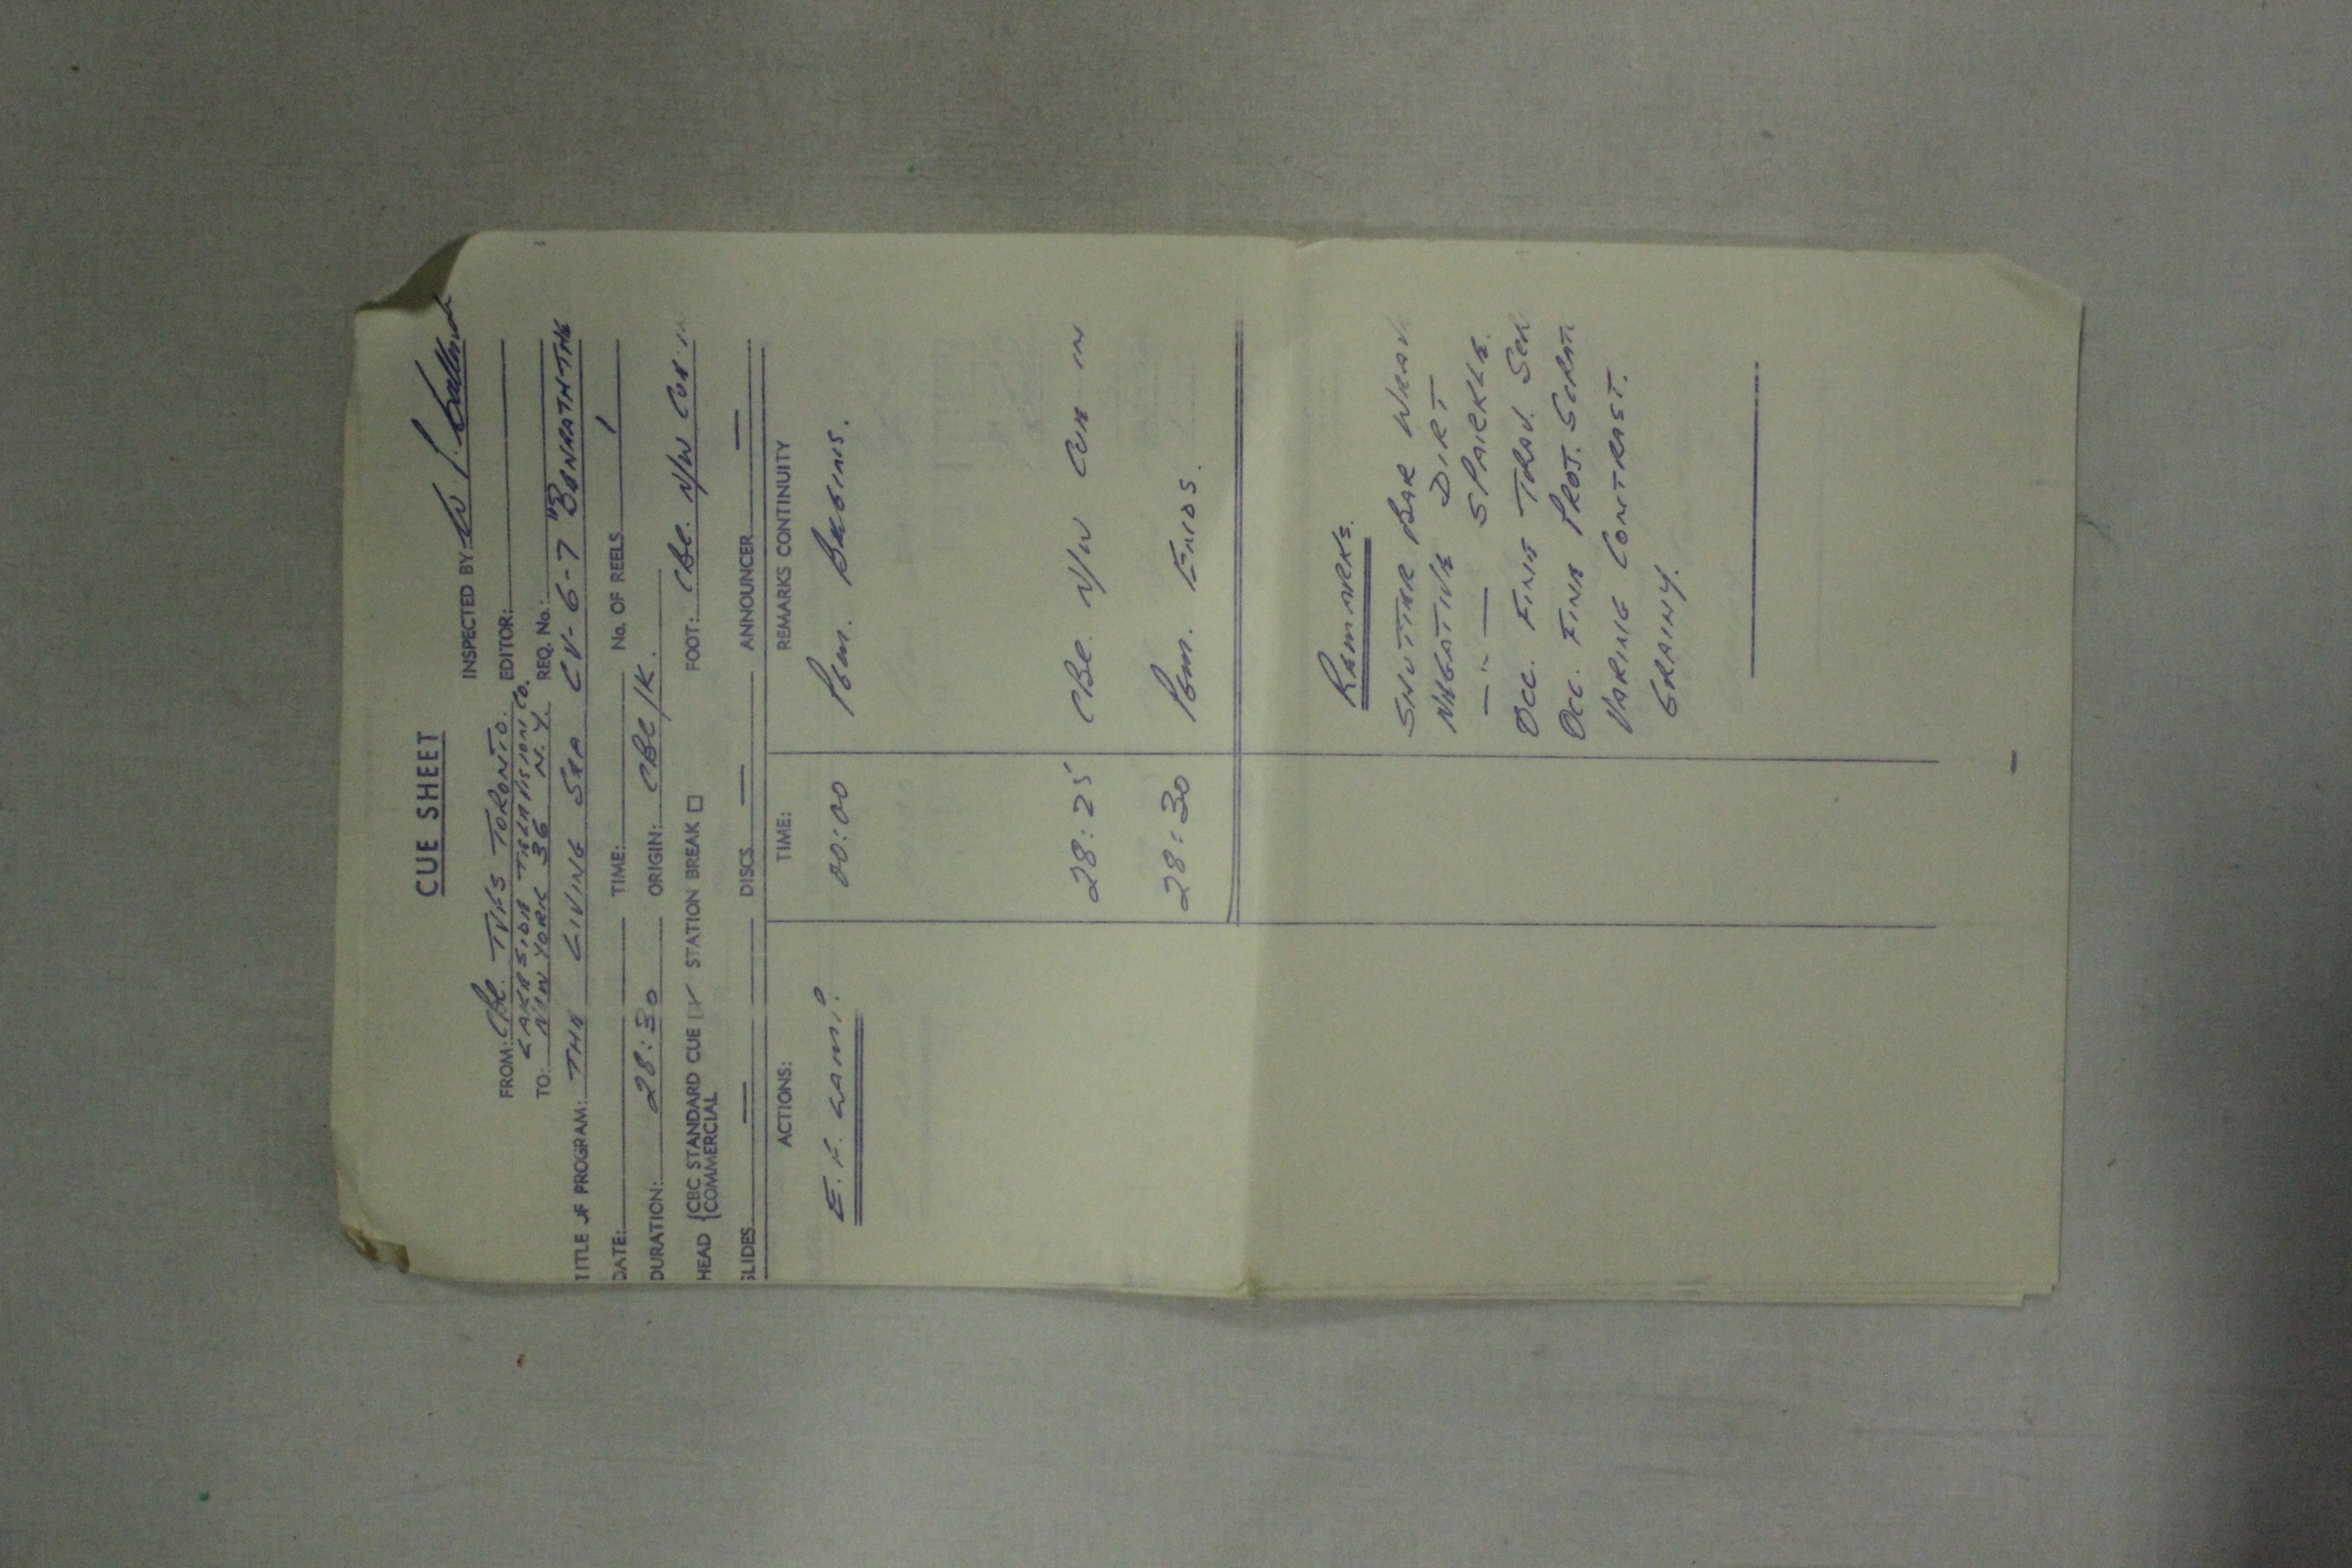 CUE SHEET
INSPECTED BY:
FROM: CBC. TVFS TORONTO. EDITOR:
LAKESIDE TELEVISION CO.
TO: NEW YORK 36 N.Y. REQ. No.:
TITLE OF PROGRAM: THE LIVING SEA CV-6-7 "BENEATH THE
DATE: TIME: No. OF REELS 1
DURATION: 28:30 ORIGIN: CBC/K.
HEAD {CBC STANDARD CUE STATION BREAK FOOT: CBC. N/W CUE IN
{COMMERCIAL
SLIDES — DISCS — ANNOUNCER —
ACTIONS: TIME: REMARKS CONTINUITY
00:00 Pgm. BEGINS.
28:25 CBC. N/W CUE IN
28:30 Pgm. ENDS.
REMARKS.
SHUTTER BAR WEAVE
NEGATIVE DIRT
— " — SPARKLE.
OCC. FINE TRAV. SCR
OCC. FINE PROJ. SCRATC
VARING CONTRAST.
GRAINY.